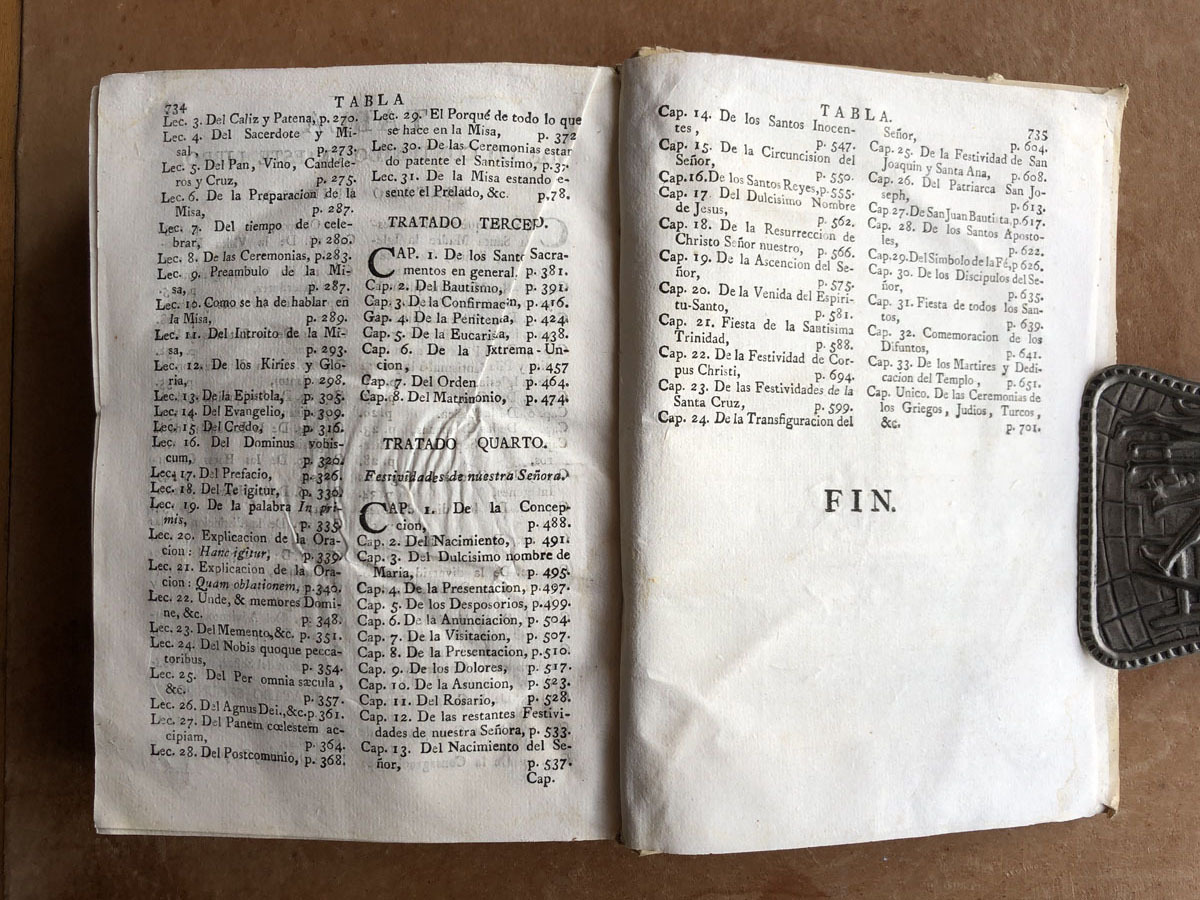 734
TABLA
Lec. 3. Del Caliz y Patena, p. 270.
Lec. 4. Del Sacerdote y Mi-
sal, p. 273.
Lec. 5. Del Pan, Vino, Candele-
ros y Cruz, p. 275.
Lec. 6. De la Preparacion de la
Misa, p. 287.
Lec. 7. Del tiempo de cele-
brar, p. 280.
Lec. 8. De las Ceremonias, p.283.
Lec. 9. Preambulo de la Mi-
sa, p. 287.
Lec. 10. Como se ha de hablar en
la Misa, p. 289.
Lec. 11. Del Introito de la Mi-
sa, p. 293.
Lec. 12. De los Kiries y Glo-
ria, p. 298.
Lec. 13. De la Epistola, p. 305.
Lec. 14. Del Evangelio, p. 309.
Lec. 15 Del Credo, p. 316.
Lec. 16. Del Dominus vobis-
cum, p. 320.
Lec. 17. Del Prefacio, p. 326.
Lec. 18. Del Te igitur, p. 330.
Lec. 19. De la palabra In pri-
mis, p. 335.
Lec. 20. Explicacion de la Ora-
cion: Hanc igitur, p. 339.
Lec. 21. Explicacion de la Ora-
cion: Quam oblationem, p. 340.
Lec. 22. Unde, & memores Domi-
ne, &c. p. 348.
Lec. 23. Del Memento, &c. p. 351.
Lec. 24. Del Nobis quoque pecca-
toribus, p. 354.
Lec. 25. Del Per omnia sæcula,
&c. p. 357.
Lec. 26. Del Agnus Dei., &c. p. 361.
Lec. 27. Del Panem cœlestem ac-
cipiam, p. 364.
Lec. 28. Del Postcomunio, p. 368.
Lec. 29. El Porqué de todo lo que
se hace en la Misa, p. 372
Lec. 30. De las Ceremonias estar
do patente el Santisimo, p.37
Lec. 31. De la Misa estando e-
sente el Prelado, &c. p.78.
TRATADO TERCER.
CAP. 1. De los Sant Sacra-
mentos en general. p. 381.
Cap. 2. Del Bautismo, p. 391.
Cap. 3. De la Confirmacin, p. 416.
Gap. 4. De la Penitenia, p. 424.
Cap. 5. De la Eucarisa, p. 438.
Cap. 6. De la Extrema-Un-
cion, p. 457
Cap. 7. Del Orden p. 464.
Cap. 8. Del Matrimonio, p. 474.
TRATADO QUARTO.
Festividades de nuestra Señora.
CAP. 1. De la Concep-
cion, p. 488.
Cap. 2. Del Nacimiento, p. 491.
Cap. 3. Del Dulcisimo nombre de
Maria, p. 495.
Cap. 4. De la Presentacion, p.497.
Cap. 5. De los Desposorios, p.499.
Cap. 6. De la Anunciacion, p. 504.
Cap. 7. De la Visitacion, p. 507.
Cap. 8. De la Presentacion, p.510.
Cap. 9. De los Dolores, p. 517.
Cap. 10. De la Asuncion, p. 523.
Cap. 11. Del Rosario, p. 528.
Cap. 12. De las restantes Festivi-
dades de nuestra Señora, p. 533.
Cap. 13. Del Nacimiento del Se-
ñor, p. 537.
Cap.
TABLA.
735
Cap. 14. De los Santos Inocen-
tes, p. 547.
Cap. 15. De la Circuncision del
Señor, p. 550.
Cap.16. De los Santos Reyes, p.555.
Cap. 17 Del Dulcisimo Nombre
de Jesus, p. 562.
Cap. 18. De la Resurreccion de
Christo Señor nuestro, p. 566.
Cap. 19. De la Ascencion del Se-
ñor, p. 575.
Cap. 20. De la Venida del Espiri-
tu-Santo, p. 581.
Cap. 21. Fiesta de la Santisima
Trinidad, p. 588.
Cap. 22. De la Festividad de Cor-
pus Christi, p. 694.
Cap. 23. De las Festividades de la
Santa Cruz, p. 599.
Cap. 24. De la Transfiguracion del
Señor, p. 604.
Cap. 25. De la Festividad de San
Joaquin y Santa Ana, p. 608.
Cap. 26. Del Patriarca San Jo-
seph, p. 613.
Cap 27. De San Juan Bautista, p.617.
Cap. 28. De los Santos Aposto-
les, p. 622.
Cap.29. Del Simbolo de la Fé, p 626.
Cap. 30. De los Discipulos del Se-
ñor, p. 635.
Cap. 31. Fiesta de todos los San-
tos, p. 639.
Cap. 32. Comemoracion de los
Difuntos, p. 641.
Cap. 33. De los Martires y Dedi-
cacion del Templo, p. 651.
Cap. Unico. De las Ceremonias de
los Griegos, Judios, Turcos,
&c. p. 701.
FIN.